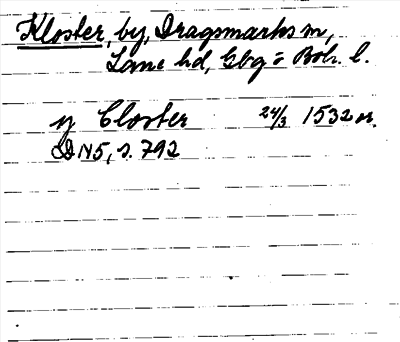 Kloster, by, Dragsmarks sn,
Lane hd, Gbg = Boh. l.
y Closter 24/3 1532 or.
DN 5, s. 792